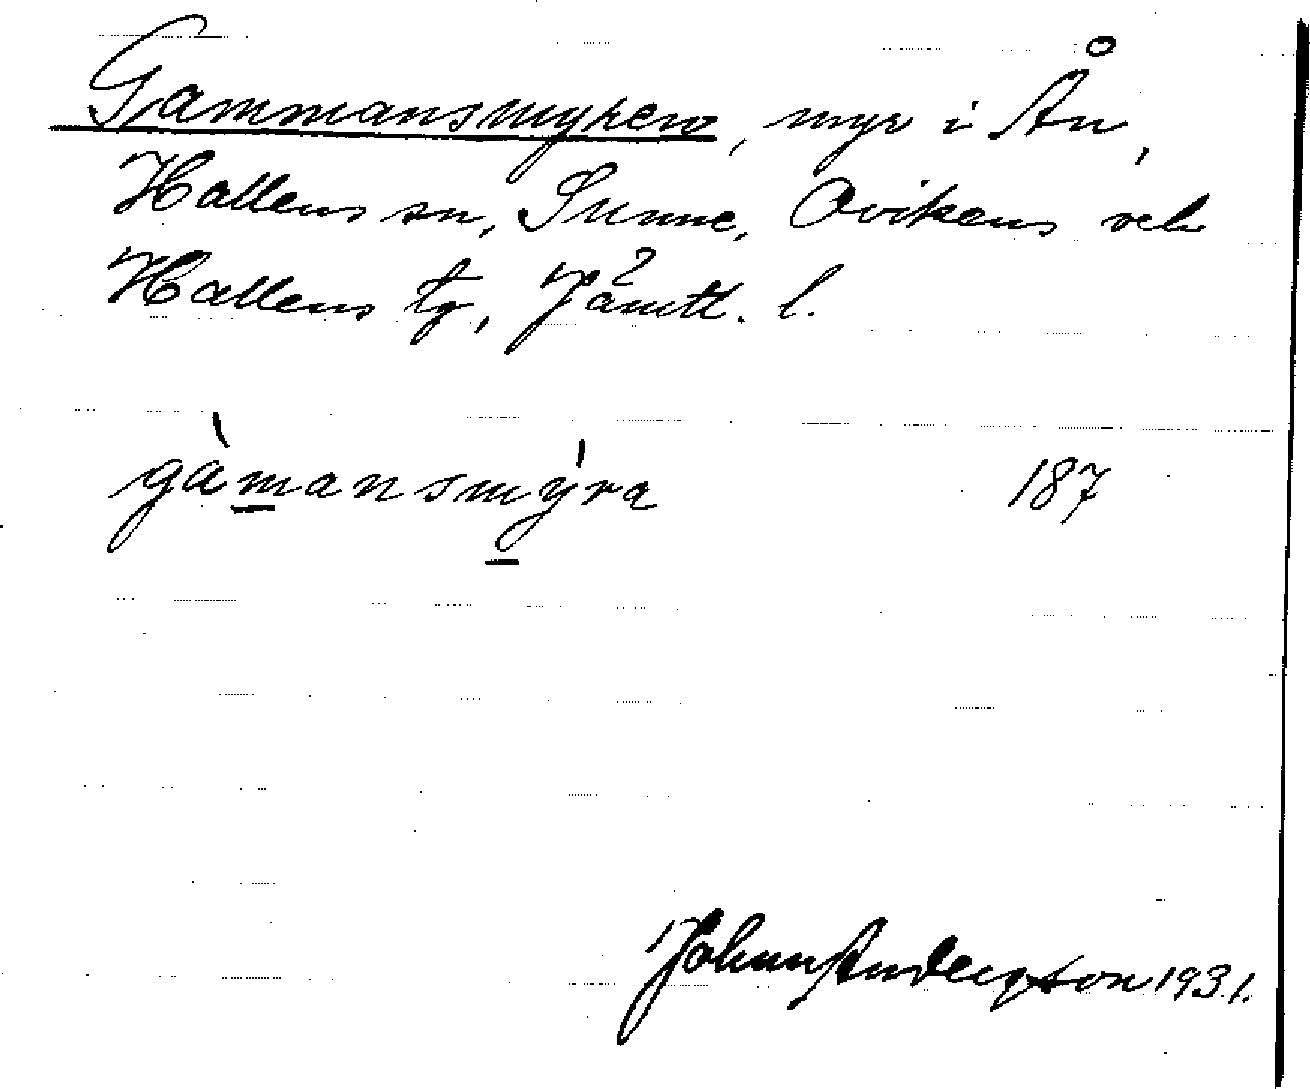 Gammansmyren, myr i Ån,
Hallens sn, Sunne, Ovikens och
Hallens tg, Jämtl. l.
gàmansmýra 187
Johan Anderson 1931.